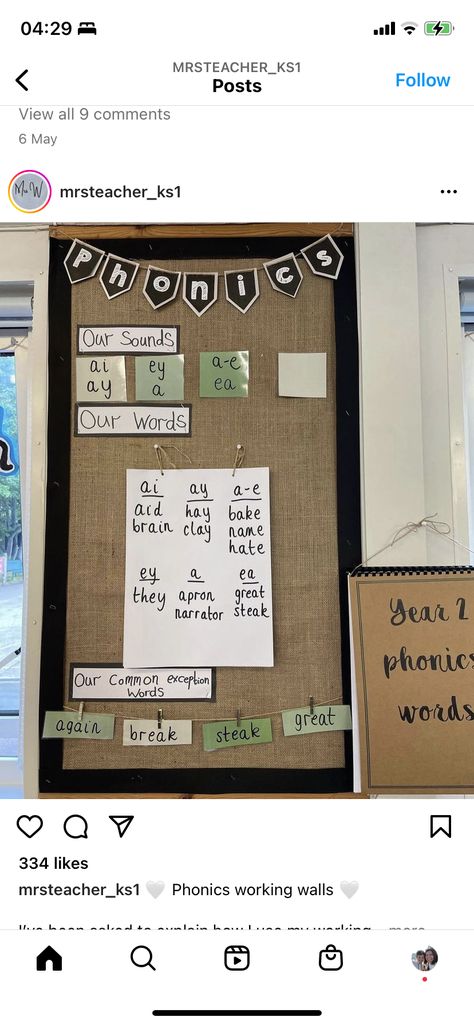 04:29
MRSTEACHER_KS1
Posts
Follow
View all 9 comments
6 May
mrsteacher_ks1
Phonics
Our Sounds
ai ey a-e
ay a ea
Our Words
ai ay a-e
aid hay bake
brain clay name
hate
ey a ea
they apron great
narrator steak
Our Common exception
Words
again break steak great
Year 2
phonics
words
334 likes
mrsteacher_ks1 🤍 Phonics working walls 🤍